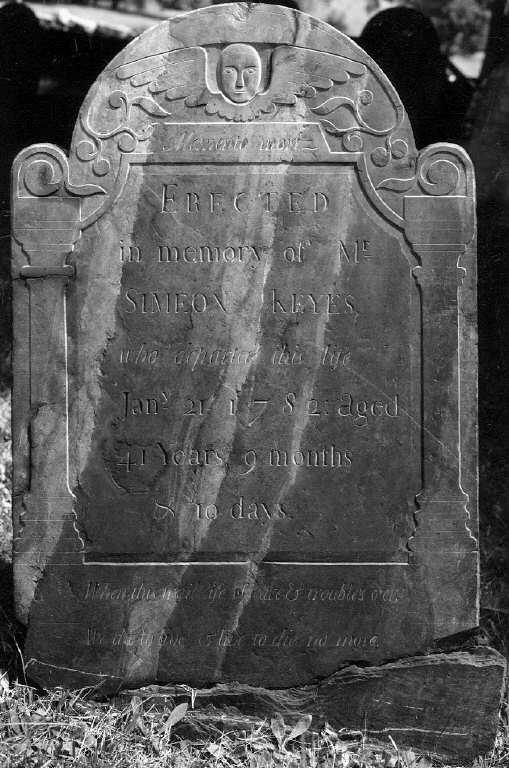 Memento mori
ERECTED
in memory of Mr.
SIMEON KEYES,
who departed this life
Jany. 21. 1782: aged
41 Years 9 months
& 10 days.
When this frail life of care & troubles o'er,
We die to live, & live to die no more.